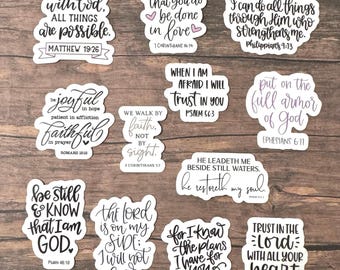 with God,
ALL THINGS
are possible.
MATTHEW 19:26
that you do
be done
in love
1 CORINTHIANS 16:14
I can do all
things through
Him who
strengthens me.
Philippians 4:13
be joyful in hope
patient in affliction
faithful
in prayer
ROMANS 12:12
WE WALK BY
faith
NOT
by
SIGHT
2 CORINTHIANS 5:7
WHEN I AM
AFRAID I WILL
TRUST IN YOU
PSALM 56:3
put on the
full armor
of God
EPHESIANS 6:11
HE LEADETH ME
BESIDE STILL WATERS.
he restoreth my soul.
be still &
KNOW
that I am
GOD.
Psalm 46:10
the Lord
is on my
side;
I will not
for I know
the plans
I have for
TRUST IN THE
Lord
WITH ALL YOUR
heart